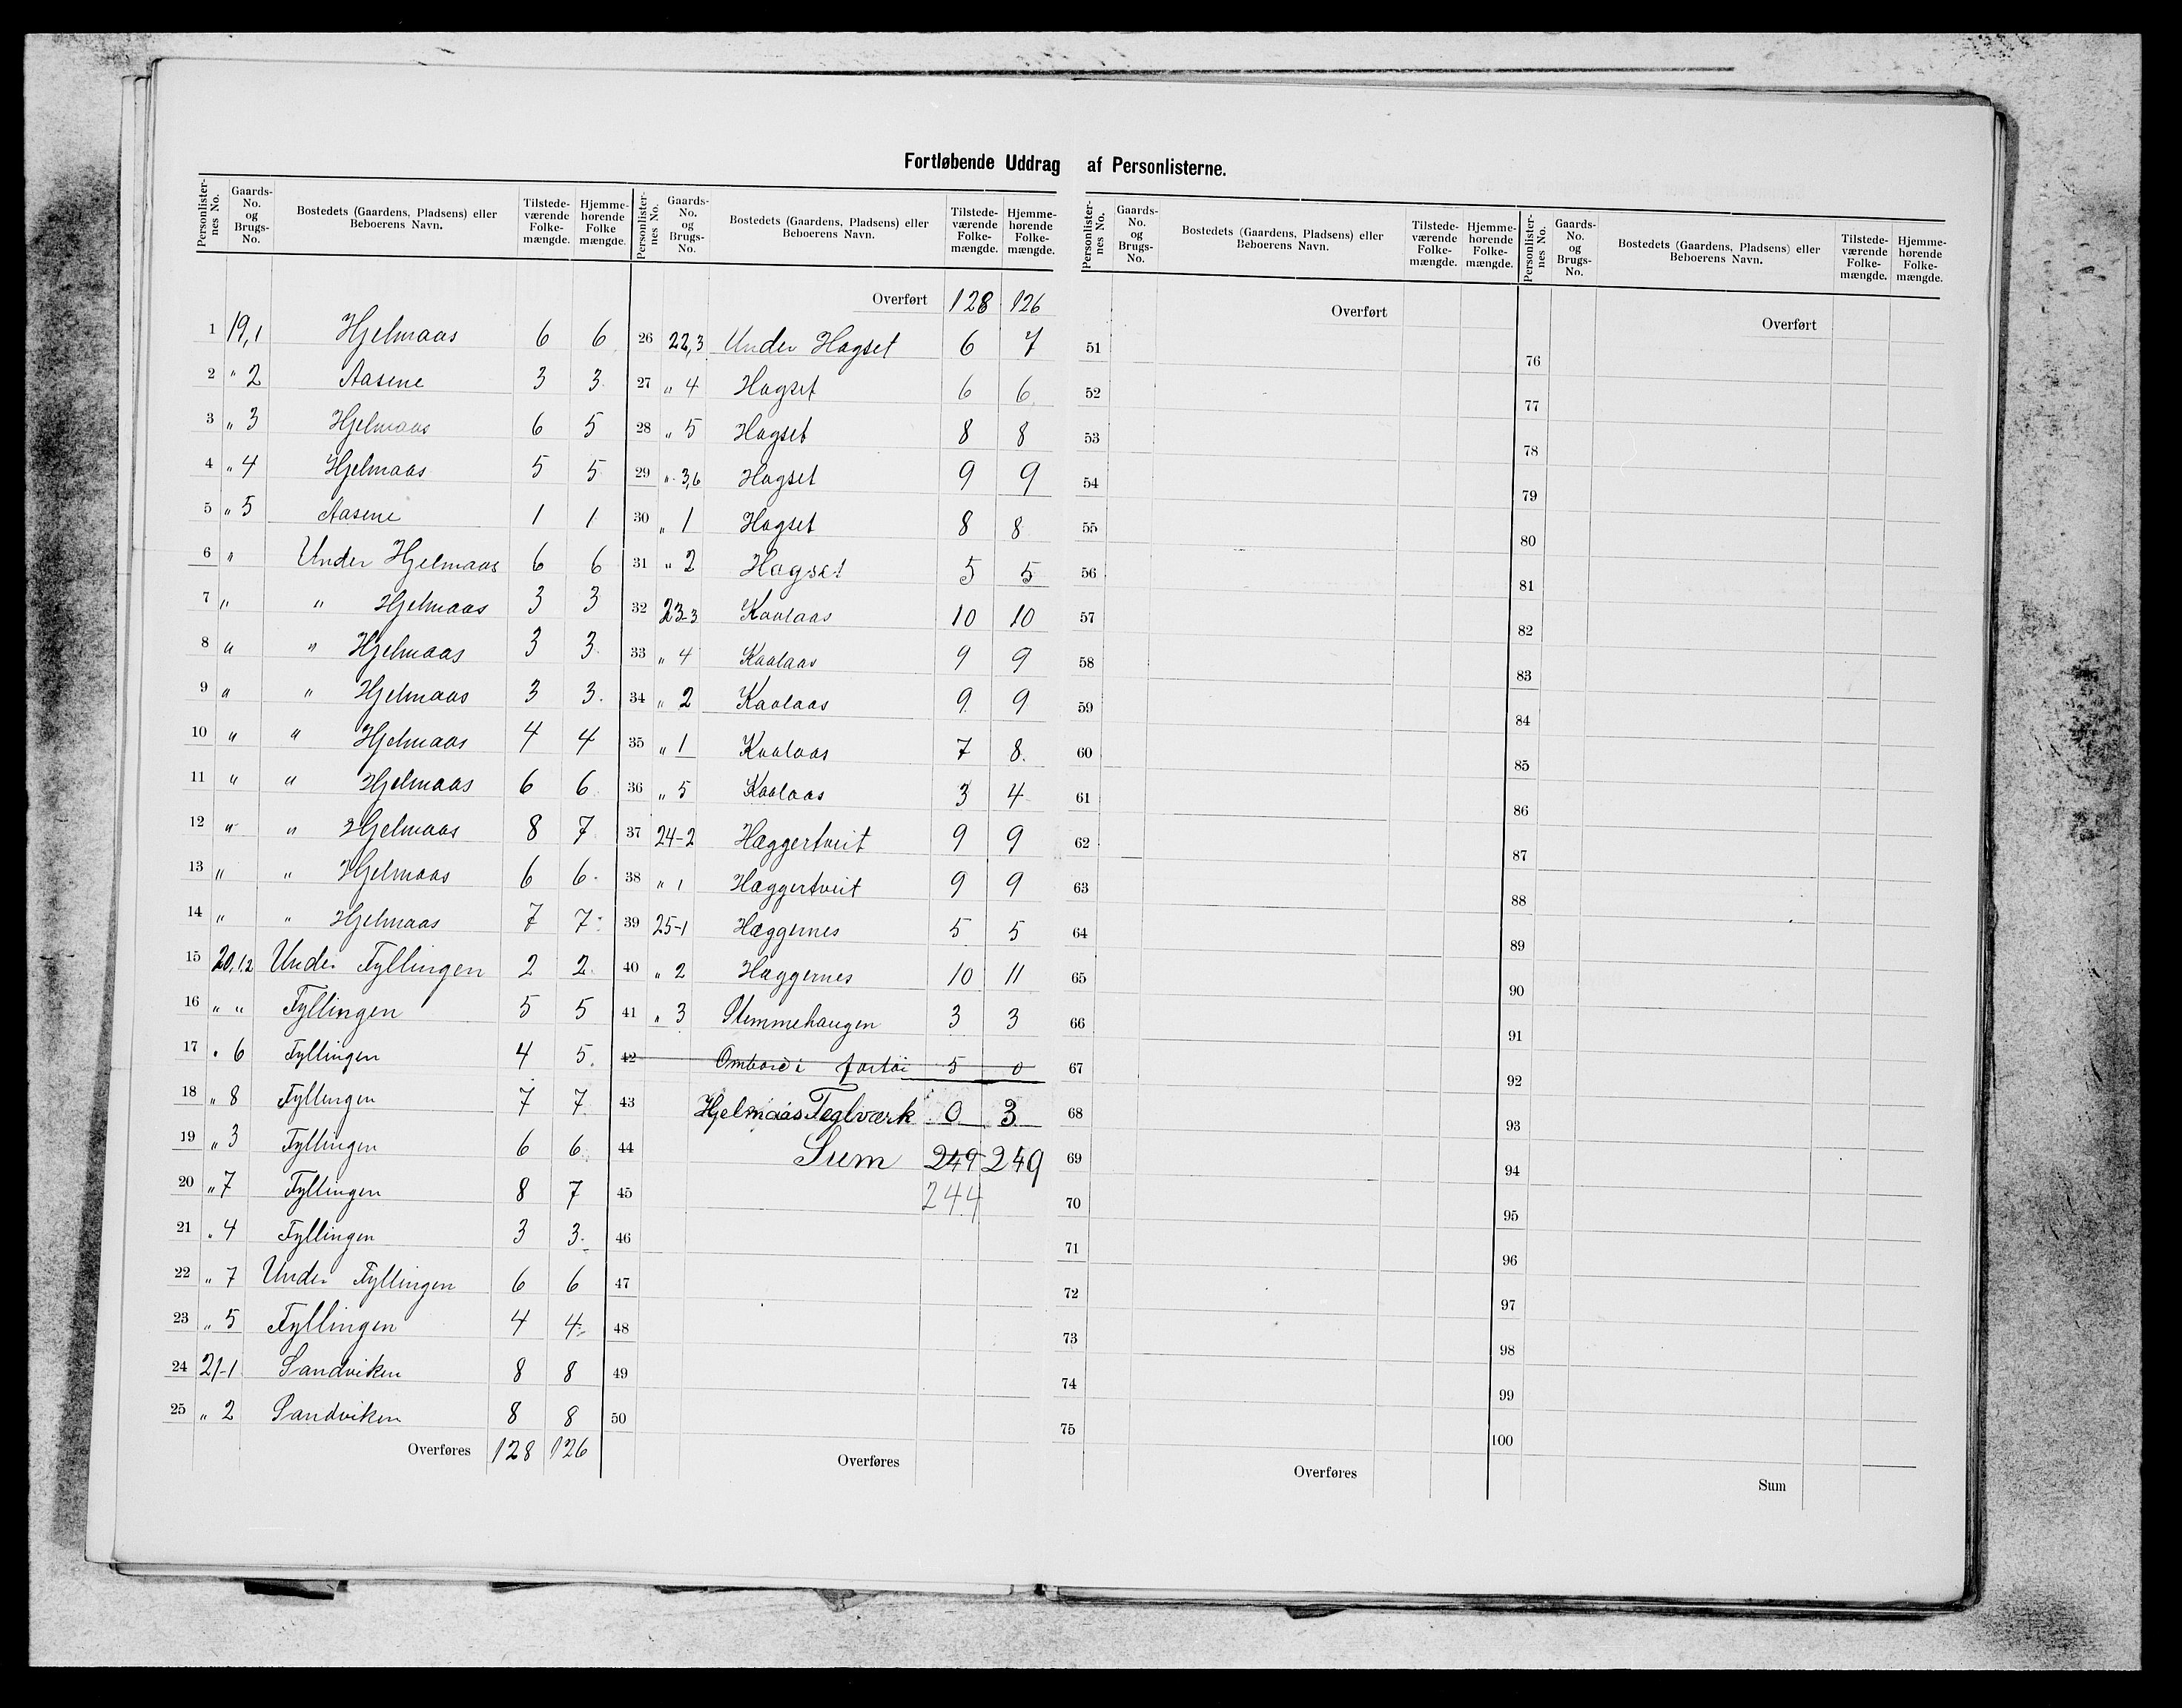 Fortløbende Uddrag af Personlisterne.
Personlister-nes No. Gaards-No. og Brugs-No. Bostedets (Gaardens, Pladsens) eller Beboerens Navn. Tilstede-værende Folke-mængde. Hjemme-hørende Folke mængde.
1 19,1 Hjelmaas 6 6
2 " 2 Aasene 3 3
3 " 3 Hjelmaas 6 5
4 " 4 Hjelmaas 5 5
5 " 5 Aasene 1 1
6 " Under Hjelmaas 6 6
7 " " Hjelmaas 3 3
8 " " Hjelmaas 3 3
9 " " Hjelmaas 3 3
10 " " Hjelmaas 4 4
11 " " Hjelmaas 6 6
12 " " Hjelmaas 8 7
13 " " Hjelmaas 6 6
14 " " Hjelmaas 7 7
15 20,1.2 Under Fyllingen 2 2
16 " " Fyllingen 5 5
17 " 6 Fyllingen 4 5
18 " 8 Fyllingen 7 7
19 " 3 Fyllingen 6 6
20 " 7 Fyllingen 8 7
21 " 4 Fyllingen 3 3
22 " 7 Under Fyllingen 6 6
23 " 5 Fyllingen 4 4
24 21-1 Sandviken 8 8
25 " 2 Sandviken 8 8
Overføres 128 126
Personlister-nes No. Gaards-No. og Brugs-No. Bostedets (Gaardens, Pladsens) eller Beboerens Navn. Tilstede-værende Folke-mængde. Hjemme-hørende Folke-mængde.
Overført 128 126
26 22,3 Under Hagset 6 7
27 " 4 Hagset 6 6
28 " 5 Hagset 8 8
29 " 3,6 Hagset 9 9
30 " 1 Hagset 8 8
31 " 2 Hagset 5 5
32 23-3 Kaalaas 10 10
33 " 4 Kaalaas 9 9
34 " 2 Kaalaas 9 9
35 " 1 Kaalaas 7 8
36 " 5 Kaalaas 3 4
37 24-2 Hæggertveit 9 9
38 " 1 Hæggertveit 9 9
39 25-1 Hæggernes 5 5
40 " 2 Hæggernes 10 11
41 " 3 Stemmehaugen 3 3
42 Ombord i fartøi 5 0
43 Hjelmaas Teglværk 0 3
44 Sum 249 249
45 244
46
47
48
49
50
Overføres
Personlister-nes No. Gaards-No. og Brugs-No. Bostedets (Gaardens, Pladsens) eller Beboerens Navn. Tilstede-værende Folke-mængde. Hjemme-hørende Folke-mængde.
Overført
51
52
53
54
55
56
57
58
59
60
61
62
63
64
65
66
67
68
69
70
71
72
73
74
75
Overføres
Personlister-nes No. Gaards-No. og Brugs-No. Bostedets (Gaardens, Pladsens) eller Beboerens Navn. Tilstede-værende Folke-mængde. Hjemme-hørende Folke-mængde.
Overført
76
77
78
79
80
81
82
83
84
85
86
87
88
89
90
91
92
93
94
95
96
97
98
99
100
Sum